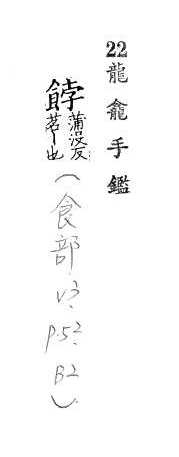 22龍龕手鑑
餑蒲没反茗〡也(食部.V3.P.52.B2).